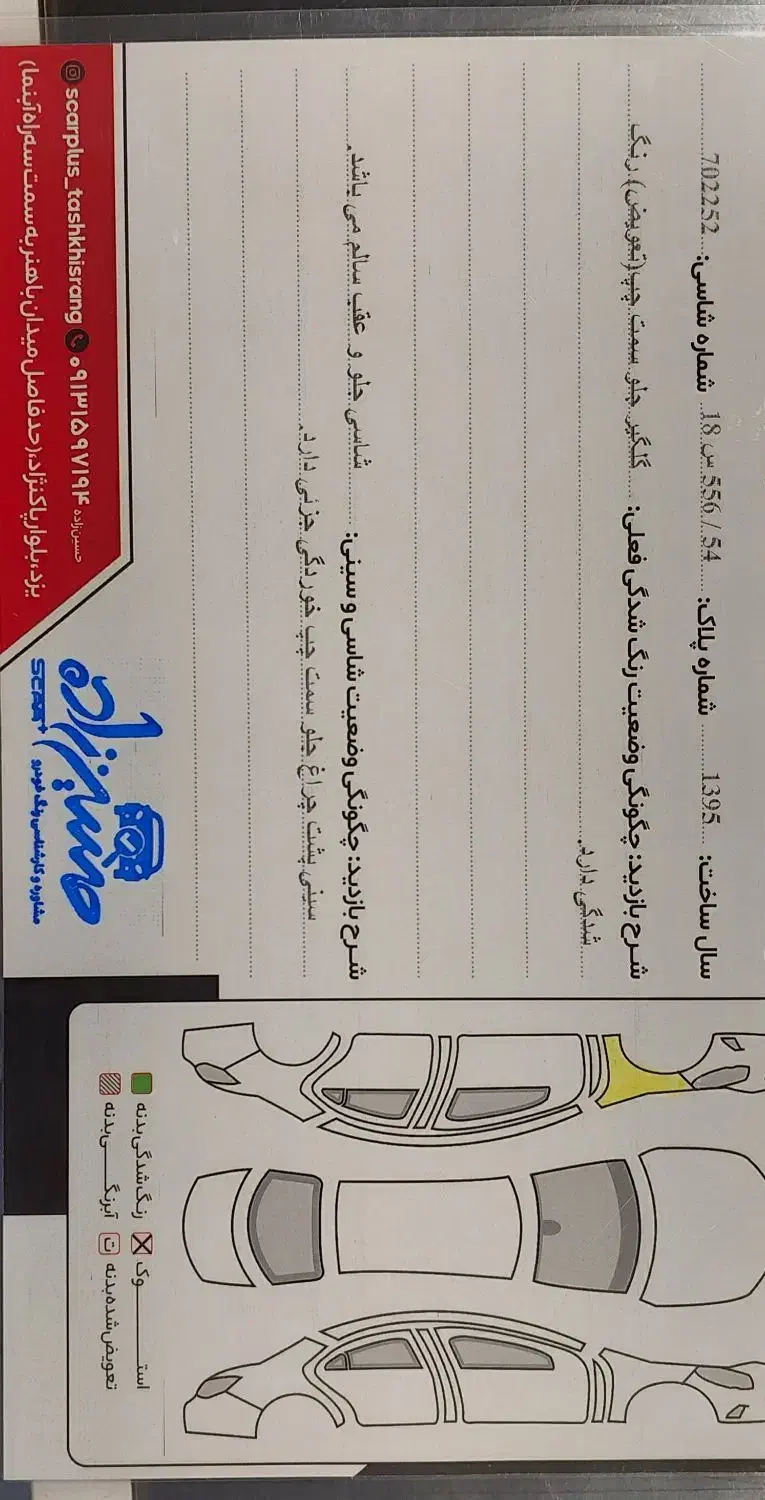 سال ساخت: 1395 شماره پلاک: 54 / 556 س 18 شماره شاسی: 702252
شرح بازدید: چگونگی وضعیت رنگ شدگی فعلی: گلگیر جلو سمت چپ(تعویض) رنگ
شدگی دارد.
شرح بازدید: چگونگی وضعیت شاسی و سینی: شاسی جلو و عقب سالم می باشد.
سینی پشت چراغ جلو سمت چپ خوردگی جزئی دارد.
رنگ شدگی بدنه
استوک
آبرنگی بدنه
ت تعویض شده بدنه
حسین زاده
SCAR+
مشاوره و کارشناسی رنگ خودرو
scarplus_tashkhisrang ۰۹۱۳۱۵۹۷۱۹۴ حسین زاده
یزد، بلوار پاکنژاد، (حدفاصل میدان باهنر به سمت سه راه آبنما)